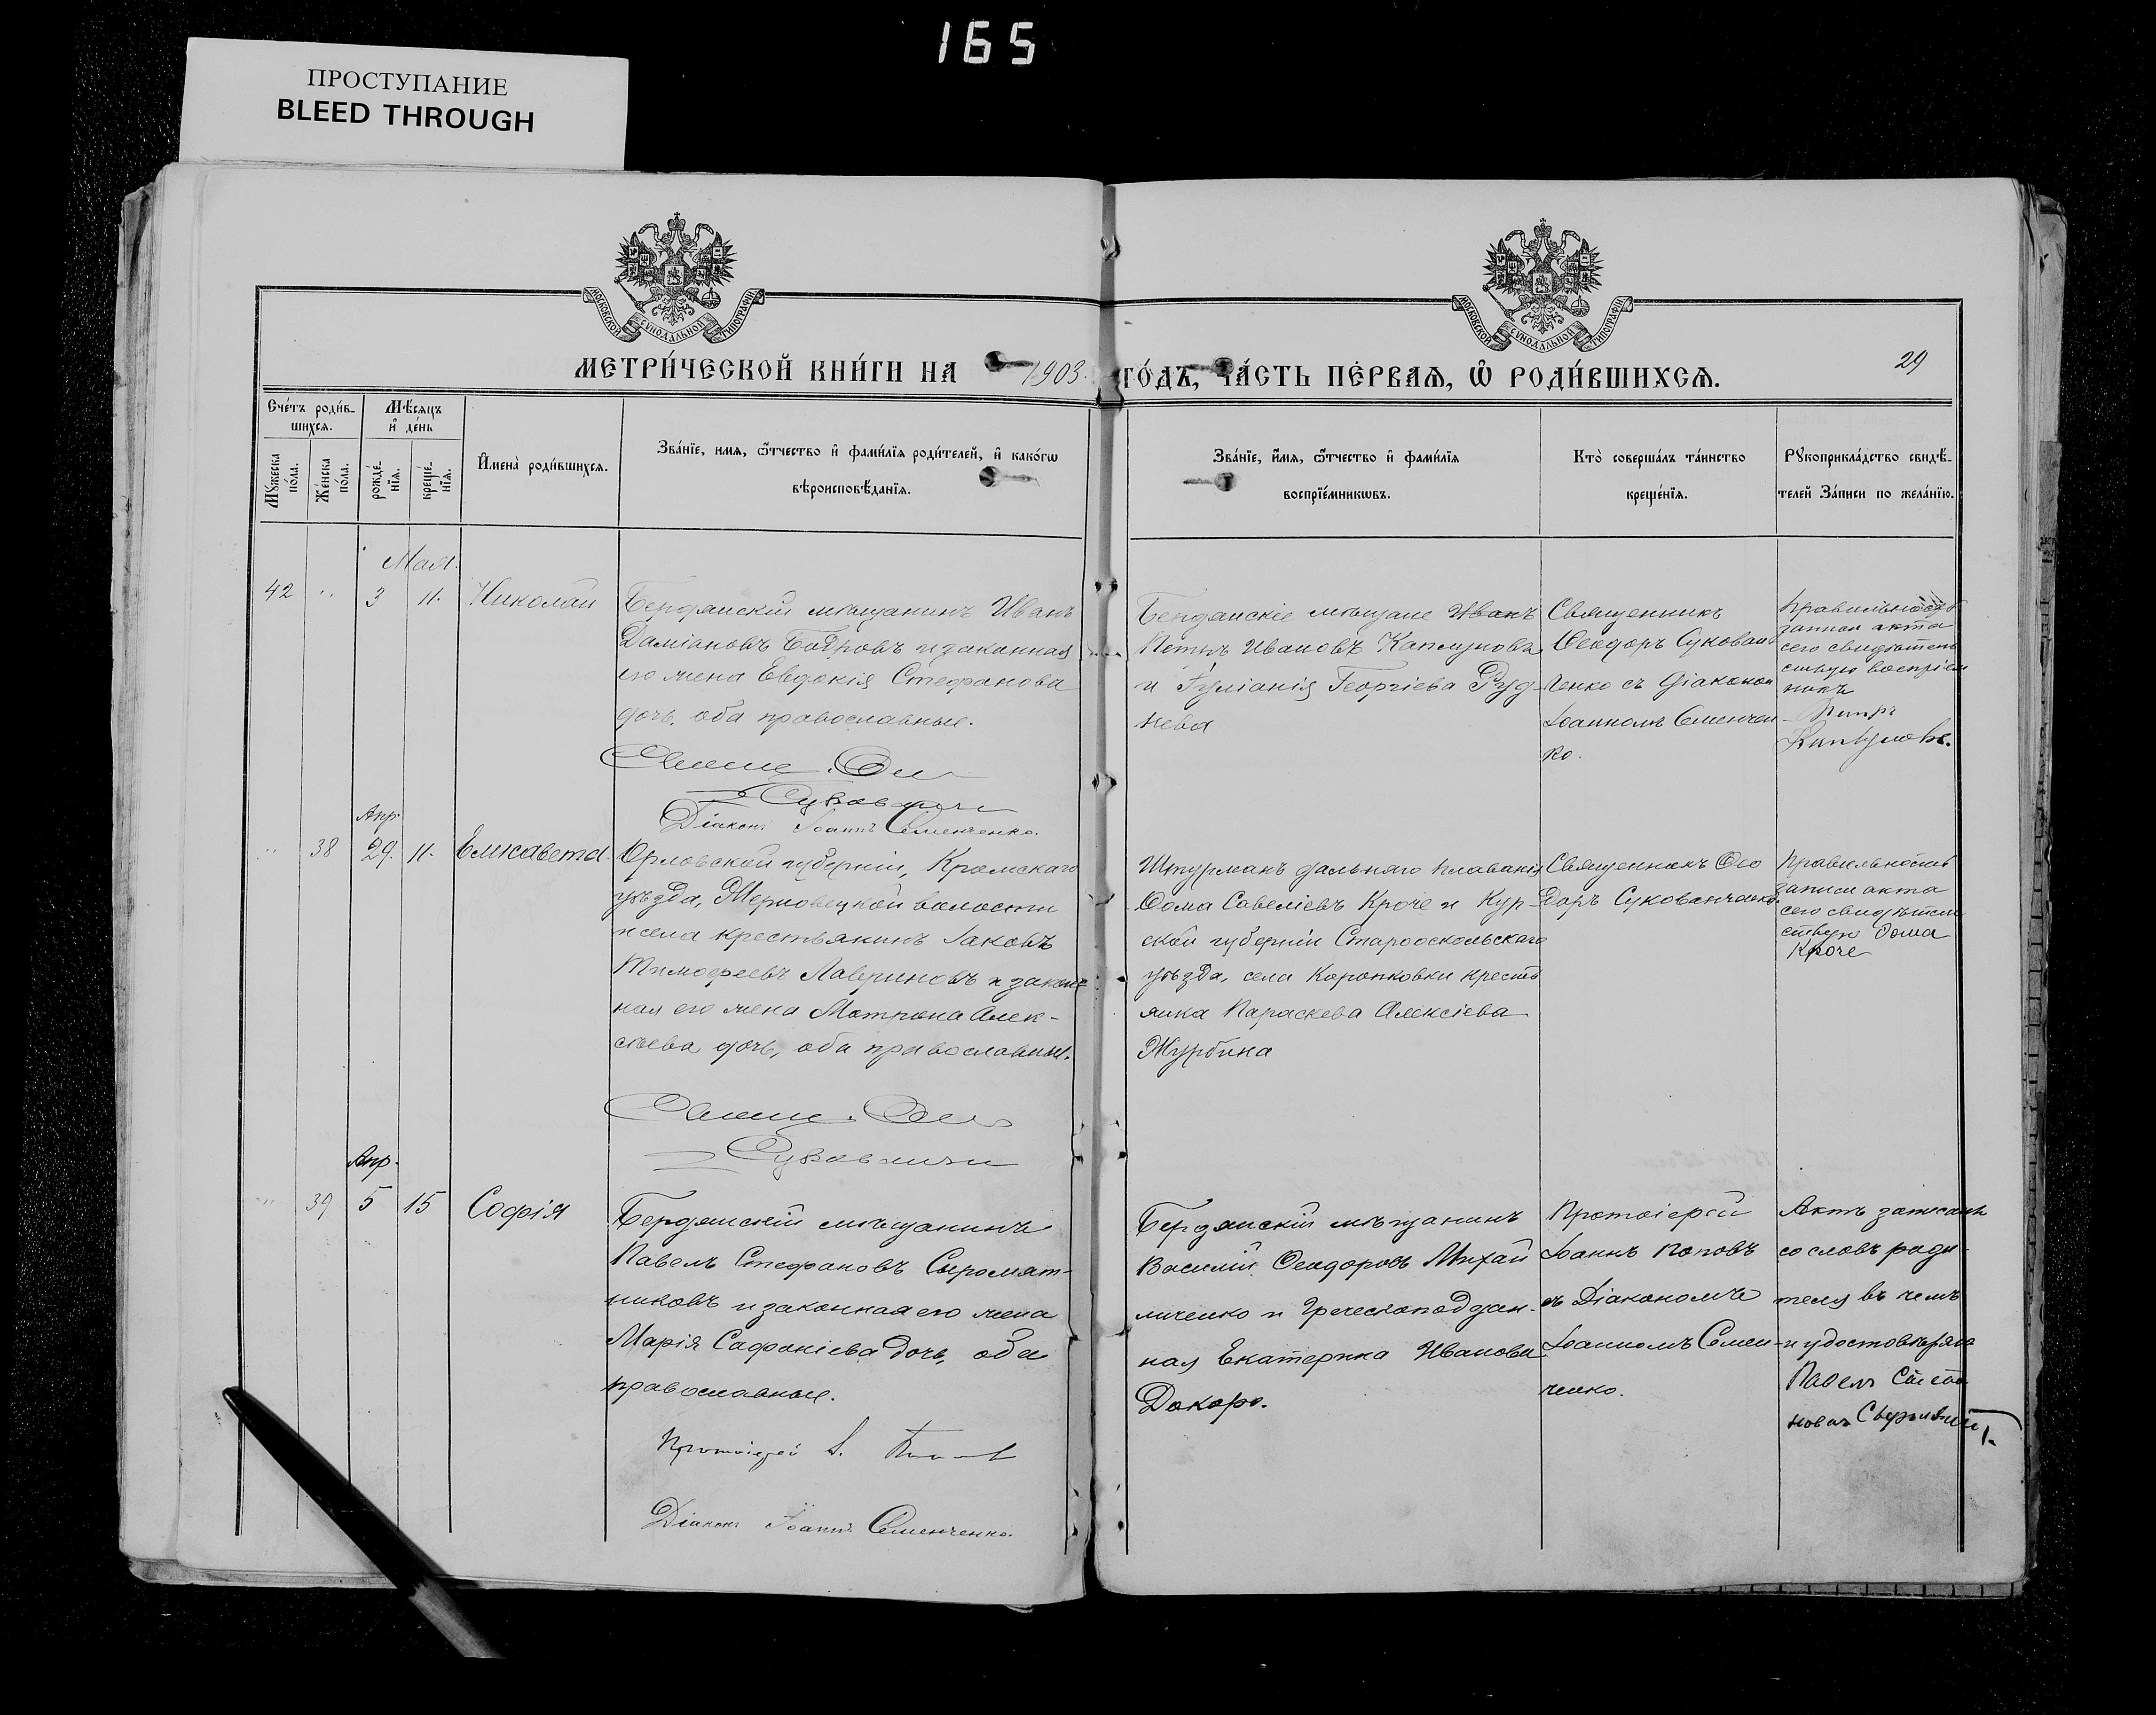 165
ПРОСТУПАНИЕ
BLEED THROUGH
МОСКОВСКОЙ СѴНОДАЛЬНОЙ ТИПОГРАФІИ
МОСКОВСКОЙ СѴНОДАЛЬНОЙ ТИПОГРАФІИ
МЕТРИ́ЧЕСКОЙ КНИ́ГИ НА 1903. ГО́ДЪ, ЧА́СТЬ ПЕ́РВАѦ, Ѡ҆ РОДИ́ВШИХСѦ.
29
Сче́тъ роди́в-
шихсѧ.
Мꙋ́жеска
по́ла.
Же́нска
по́ла.
Мѣ́сѧцъ
и҆ де́нь
рожде́-
нїѧ.
креще́-
нїѧ.
И҆мена̀ роди́вшихсѧ.
Зва́нїе, имѧ, ѻ҆́тчество и҆ фами́лїѧ роди́телей, и҆ како́гѡ
вѣроисповѣ́данїѧ.
Зва́нїе, и҆́мѧ, ѻ҆́тчество и҆ фами́лїѧ
воспрїе́мникѡвъ.
Кто̀ соверша́лъ та́инство
креще́нїѧ.
Рꙋкоприкла́дство свидѣ́-
телей За́писи по жела́нїю.
Мая.
42 " 3 11. Николай
Бердянскій мѣщанинъ Иванъ
Даміановъ и законная
его жена Евдокія Стефанова
дочь, оба православные.
Діаконъ Іоаннъ Семенченко.
Бердянскіе мѣщане Иванъ
Петръ Ивановъ Каплуновъ
и Іуліанія Георгіева Руд-
нева
Священникъ
Ѳеодоръ Сукован
ченко съ діаконом
Іоанномъ Семенчен
ко.
Правильность
записи акта
сего свидѣтель
ствую воспріем
никъ
Петръ
Каплуновъ.
Апр.
" 38 29. 11. Елисавета.
Орловской губерніи, Кромскаго
уѣзда, волости
и села крестьянинъ Іаковъ
Тимофеевъ Лавриновъ и закон-
ная его жена Матрона Алек-
сѣева дочь, оба православные.
Штурманъ дальняго плаванія
Ѳома Савеліевъ Кроче и Кур-
ской губерніи Старооскольскаго
уѣзда, села Коропковки кресть
янка Параскева Алексіева
Журбина
Священникъ Ѳео
доръ Сукованченко
Правильность
записи акта
сего свидѣтель
ствую Ѳома
Кроче
Апр.
" 39 5 15 Софія
Бердянскій мѣщанинъ
Павелъ Стефановъ Сыромят-
никовъ и законная его жена
Марія Сафоніева дочь, оба
православные.
Протоіерей І. Поповъ
Діаконъ Іоаннъ Семенченко.
Бердянскій мѣщанинъ
Василій Ѳеодоровъ Михай
личенко и Греческоподдан-
ная Екатерина Иванова
Дакаро.
Протоіерей
Іоаннъ Поповъ
съ Діакономъ
Іоанномъ Семен-
ченко.
Актъ записанъ
со словъ роди-
теля въ чемъ
и удостовѣряю
Павелъ Стефа
новъ